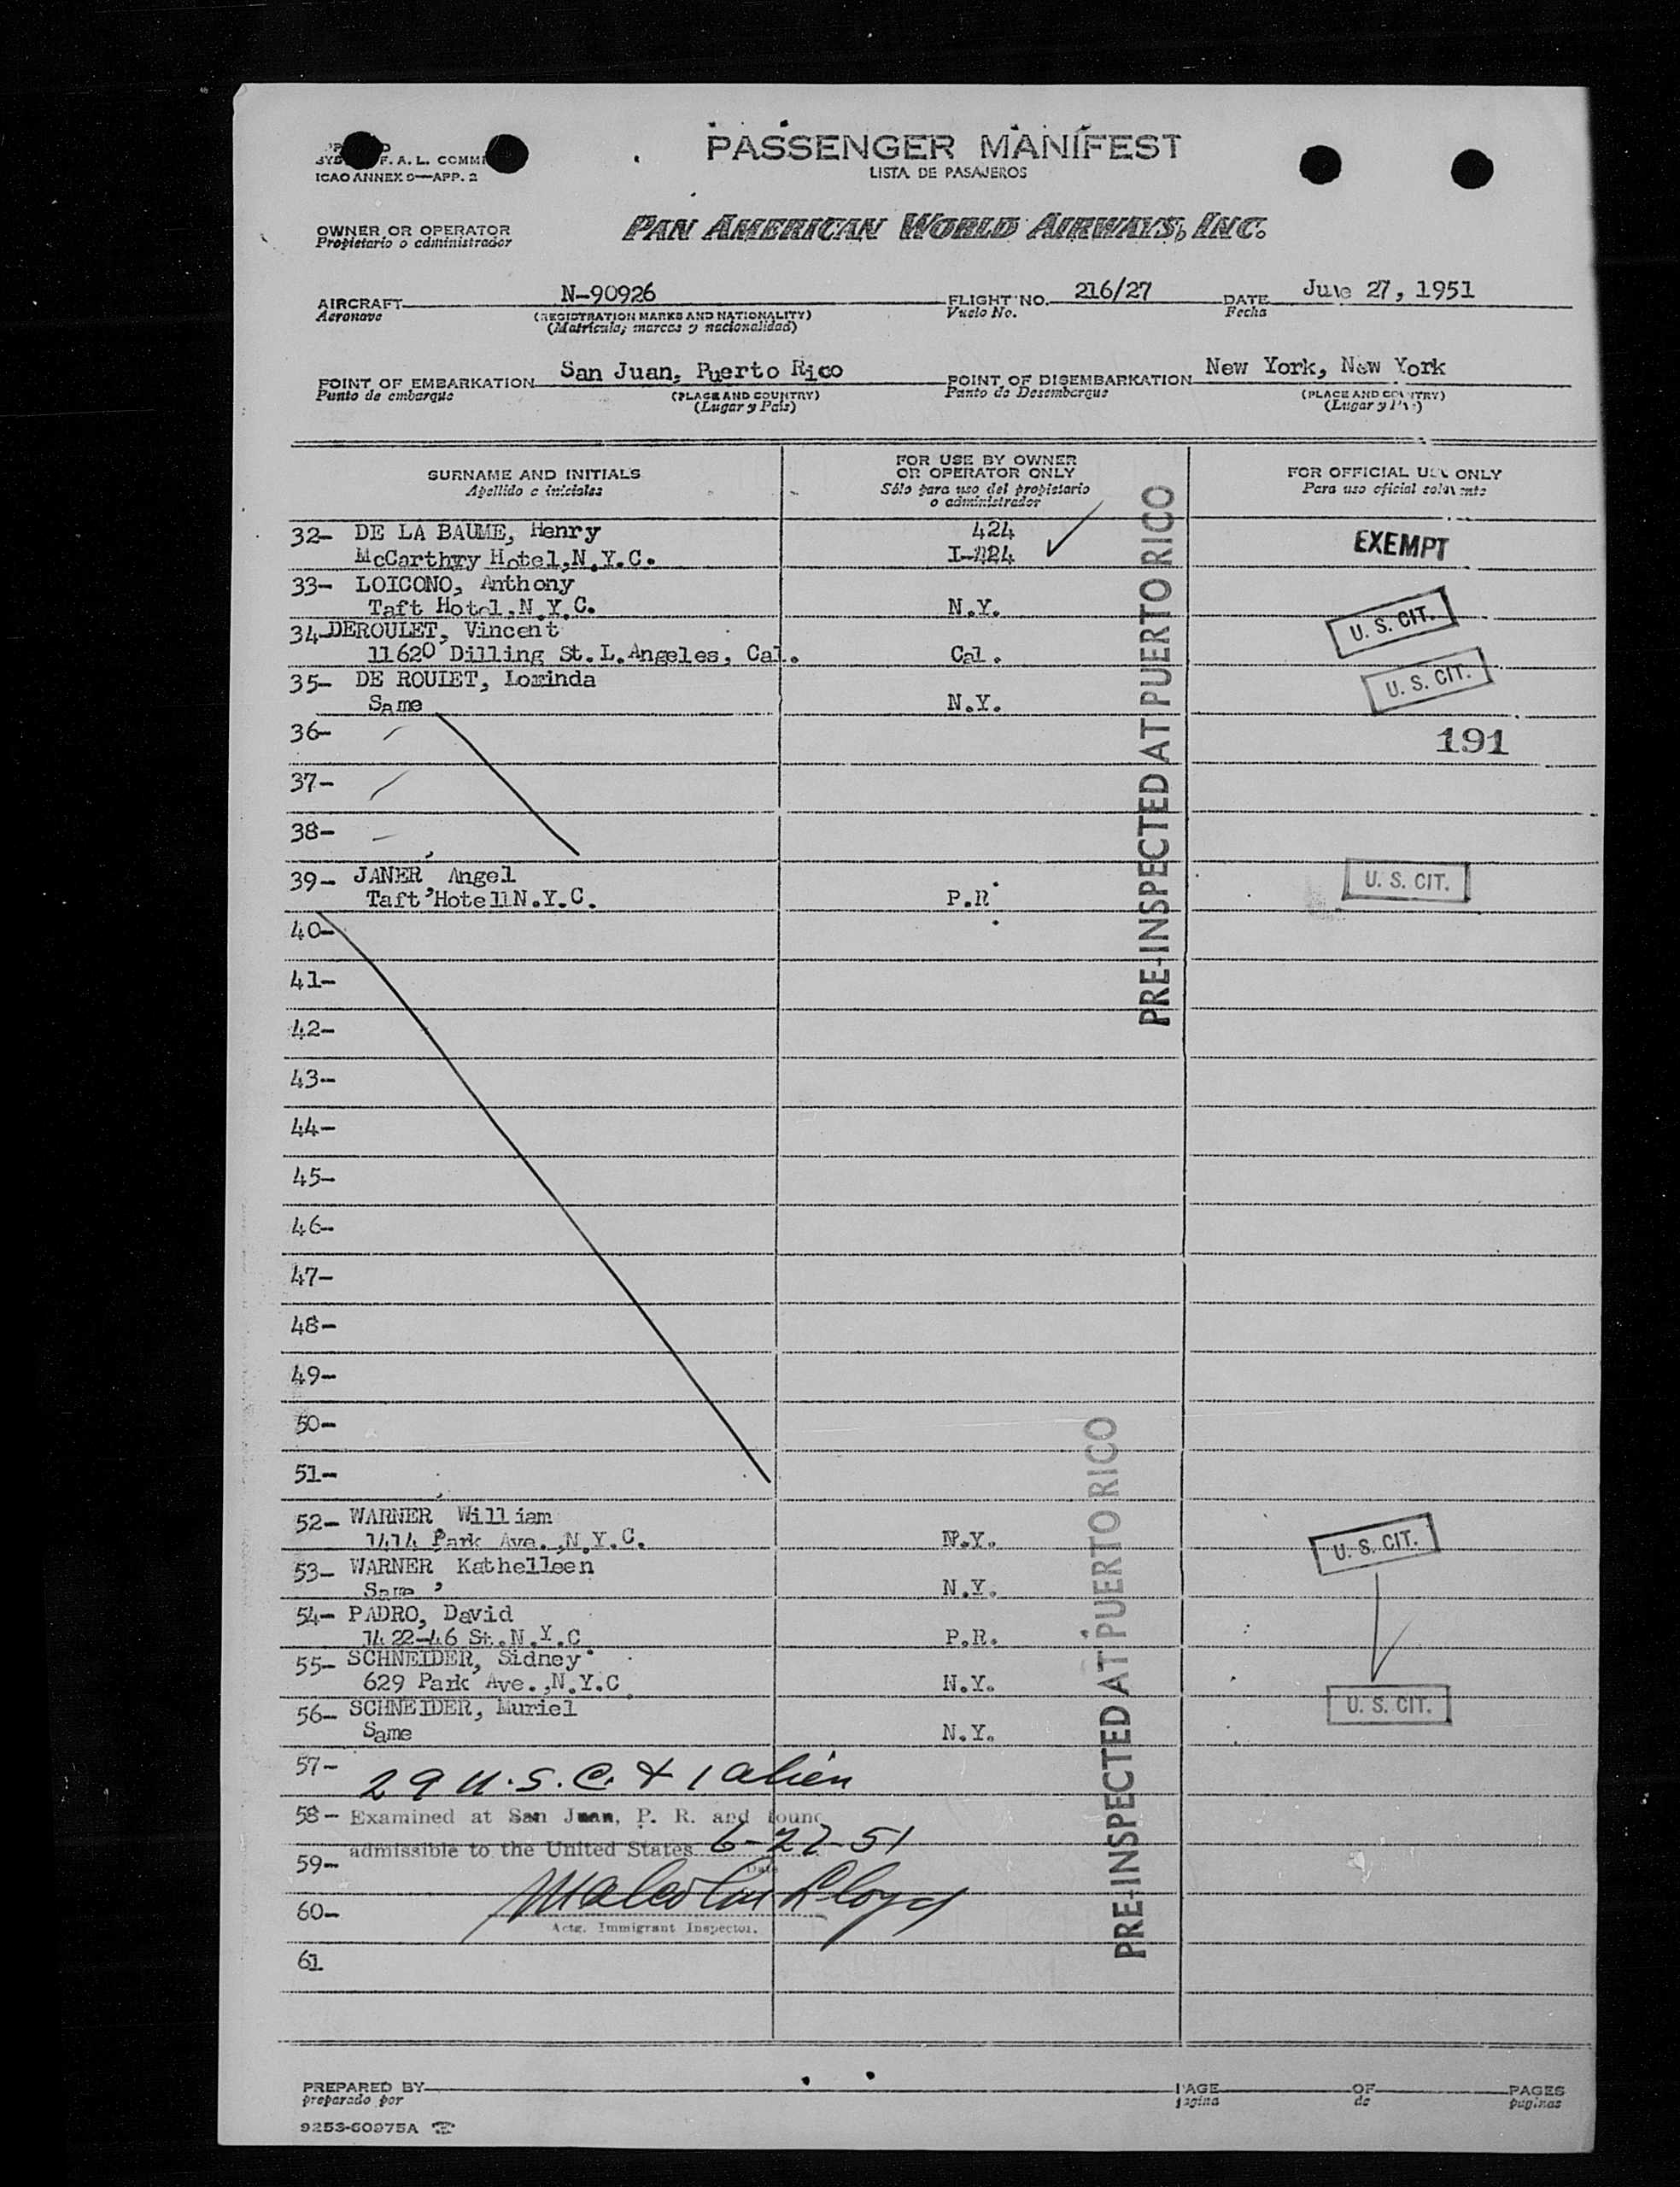 PASSENGER MANIFEST
LISTA DE PASAJEROS
F. A. L.
ICAO ANNEX 9—APP. 2
OWNER OR OPERATOR
Propietario o administrador
PAN AMERICAN WORLD AIRWAYS, INC.
AIRCRAFT N-90926 FLIGHT NO. 216/27 DATE June 27, 1951
Aeronave (REGISTRATION MARKS AND NATIONALITY) Vuelo No. Fecha
(Matrícula; marcas y nacionalidad)
POINT OF EMBARKATION San Juan, Puerto Rico POINT OF DISEMBARKATION New York, New York
Punto de embarque (PLACE AND COUNTRY) Punto de Desembarque (PLACE AND COUNTRY)
(Lugar y País) (Lugar y País)
SURNAME AND INITIALS FOR USE BY OWNER OR OPERATOR ONLY FOR OFFICIAL USE ONLY
Apellido e iniciales Sólo para uso del propietario o administrador Para uso oficial solamente
32- DE LA BAUME, Henry 424 EXEMPT
McCarthy Hotel,N.Y.C. I-424
33- LOICONO, Anthony
Taft Hotel,N.Y.C. N.Y. U. S. CIT.
34-DEROULET, Vincent
11620 Dilling St.L.Angeles, Cal. Cal. U. S. CIT.
35- DE ROULET, Lorinda
Same N.Y.
36- 191
37-
38-
39- JANER, Angel U. S. CIT.
Taft Hotel N.Y.C. P.R.
40-
41-
42-
43-
44-
45-
46-
47-
48-
49-
50-
51-
52- WARNER, William
1414 Park Ave.,N.Y.C. N.Y. U. S. CIT.
53- WARNER, Kathelleen
Same N.Y.
54- PADRO, David
1422-46 St.N.Y.C. P.R.
55- SCHNEIDER, Sidney
629 Park Ave.,N.Y.C. N.Y.
56- SCHNEIDER, Muriel U. S. CIT.
Same N.Y.
57- 29 U.S.C. + 1 alien
58- Examined at San Juan, P. R. and found
admissible to the United States 6-27-51
59- Date
60- Malcolm Lloyd
Actg. Immigrant Inspector.
61
PRE-INSPECTED AT PUERTO RICO
PRE-INSPECTED AT PUERTO RICO
PREPARED BY PAGE OF PAGES
preparado por página de páginas
9253-60975A